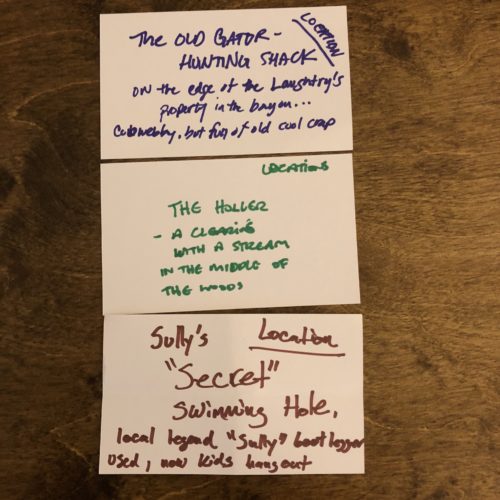 The OLD GATOR-
HUNTING SHACK
LOCATION
ON the edge of the Laughtry's
property in the bayou...
Cobwebby, but fun of old cool crap
LOCATIONS
THE HOLLER
- A CLEARING
WITH A STREAM
IN THE MIDDLE OF
THE WOODS
Sully's Location
"Secret"
Swimming Hole,
local legend "Sully" bootlegger
used, now kids hangout